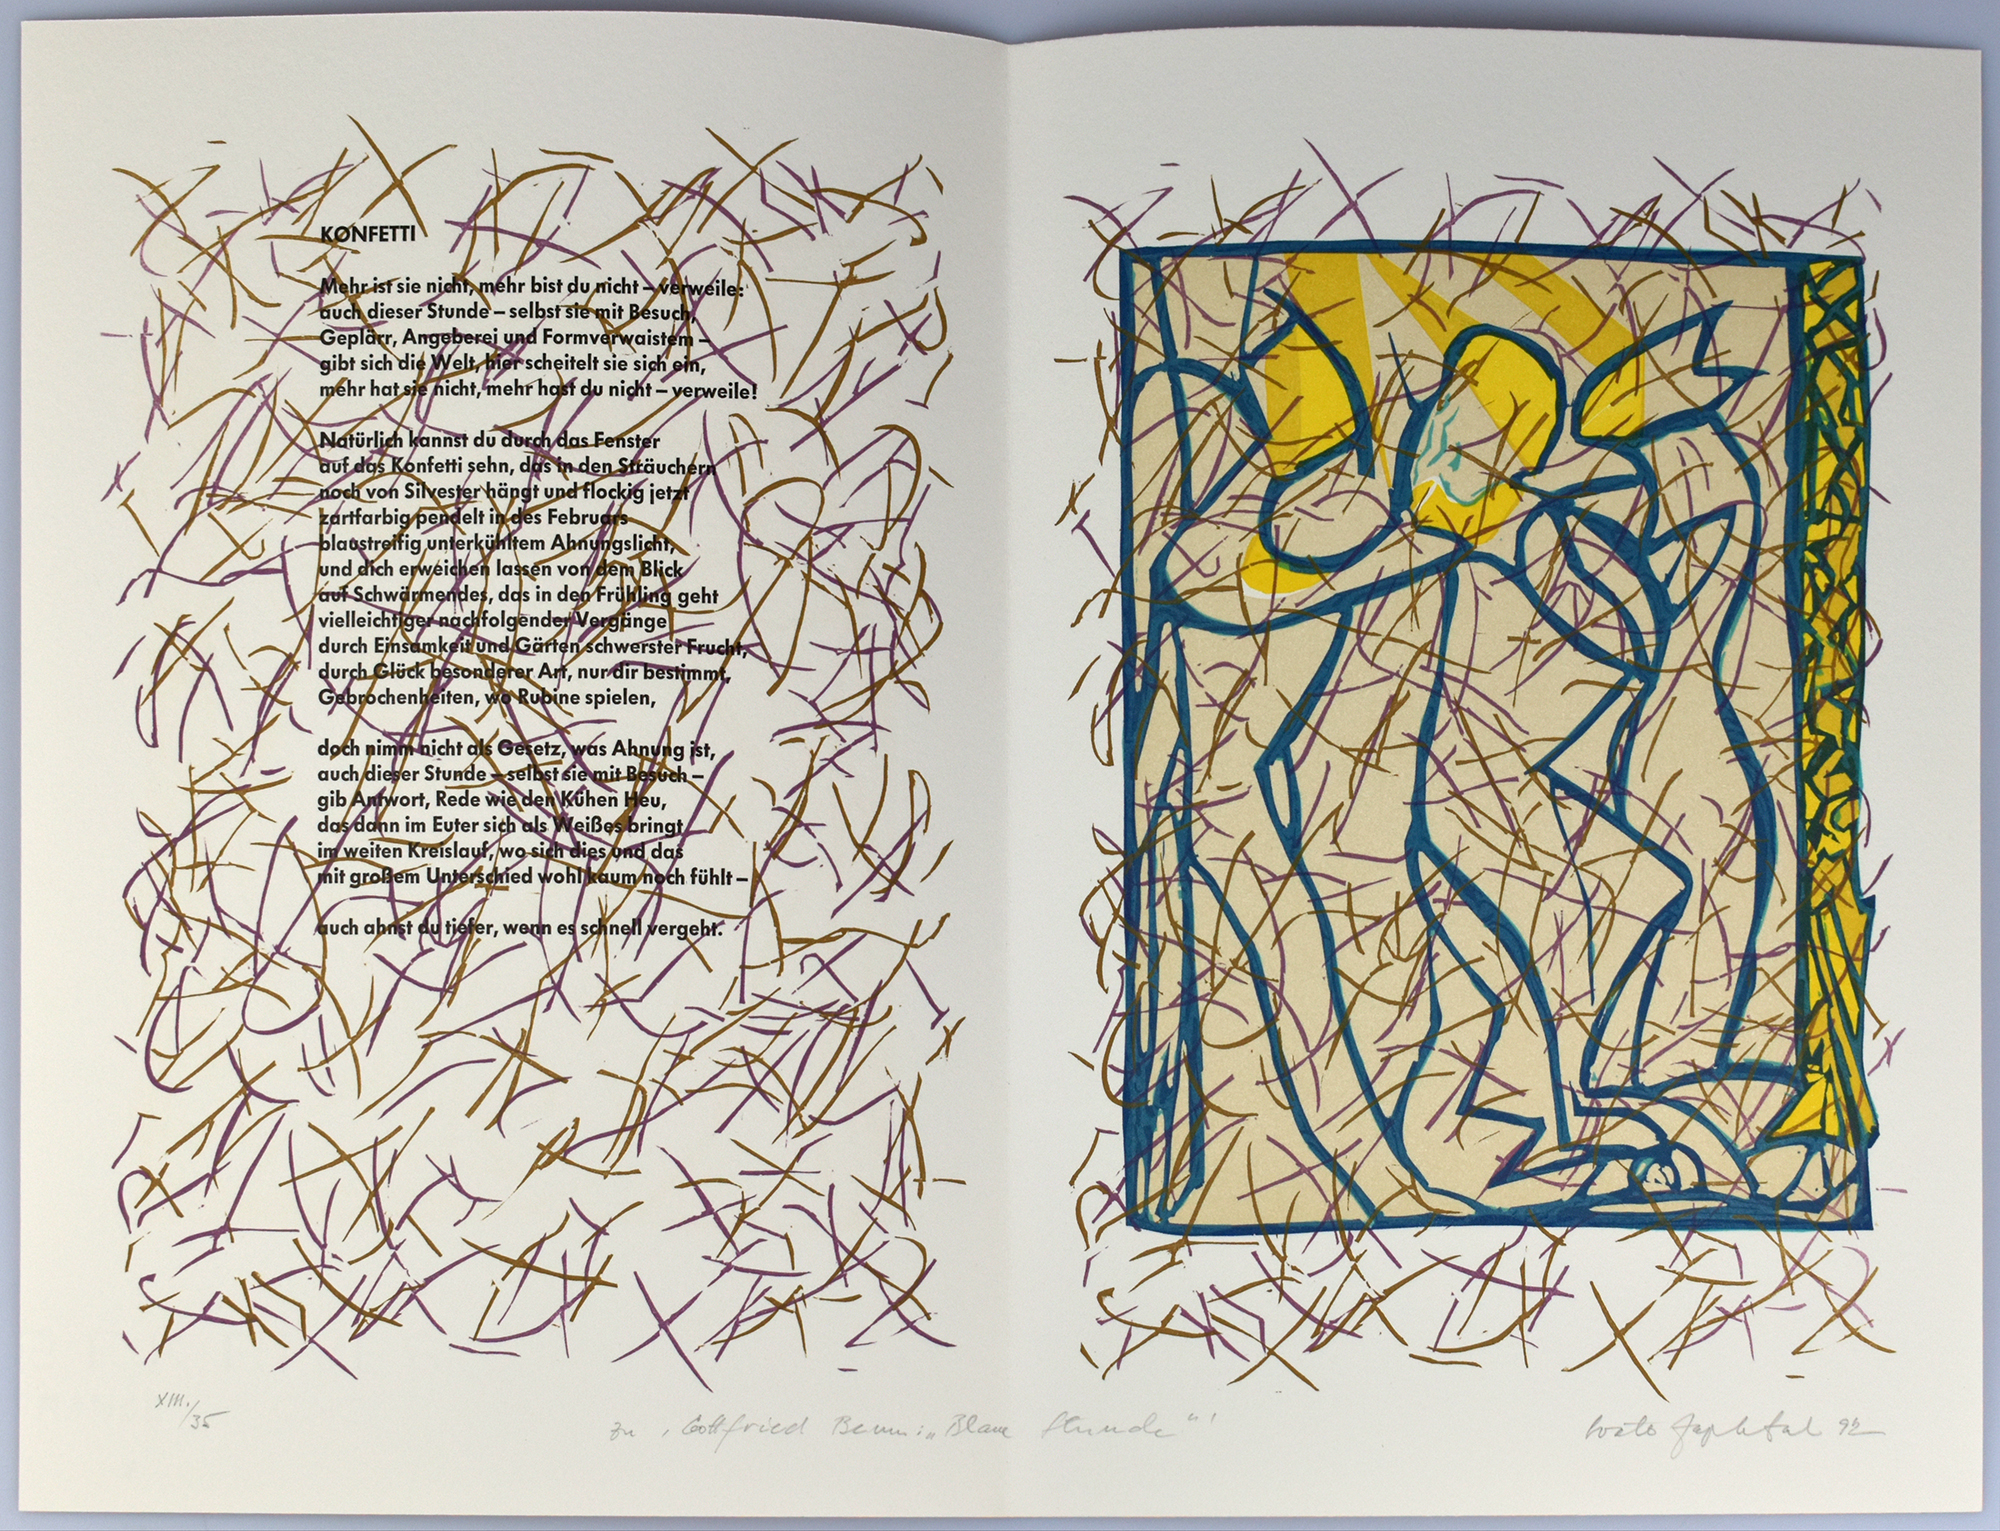 KONFETTI
Mehr ist sie nicht, mehr bist du nicht – verweile:
auch dieser Stunde – selbst sie mit Besuch,
Geplärr, Angeberei und Formverwaistem –
gibt sich die Welt, hier scheitelt sie sich ein,
mehr hat sie nicht, mehr hast du nicht – verweile!
Natürlich kannst du durch das Fenster
auf das Konfetti sehn, das in den Sträuchern
noch von Silvester hängt und flockig jetzt
zartfarbig pendelt in des Februars
blaustreifig unterkühltem Ahnungslicht,
und dich erweichen lassen von dem Blick
auf Schwärmendes, das in den Frühling geht
vielleichtiger nachfolgender Vergänge
durch Einsamkeit und Gärten schwerster Frucht,
durch Glück besonderer Art, nur dir bestimmt,
Gebrochenheiten, wo Rubine spielen,
doch nimm nicht als Gesetz, was Ahnung ist,
auch dieser Stunde – selbst sie mit Besuch –
gib Antwort, Rede wie den Kühen Heu,
das dann im Euter sich als Weißes bringt
im weiten Kreislauf, wo sich dies und das
mit großem Unterschied wohl kaum noch fühlt –
auch ahnst du tiefer, wenn es schnell vergeht.
XIII./35
zu , Gottfried Benn: „Blaue Stunde“ '
92